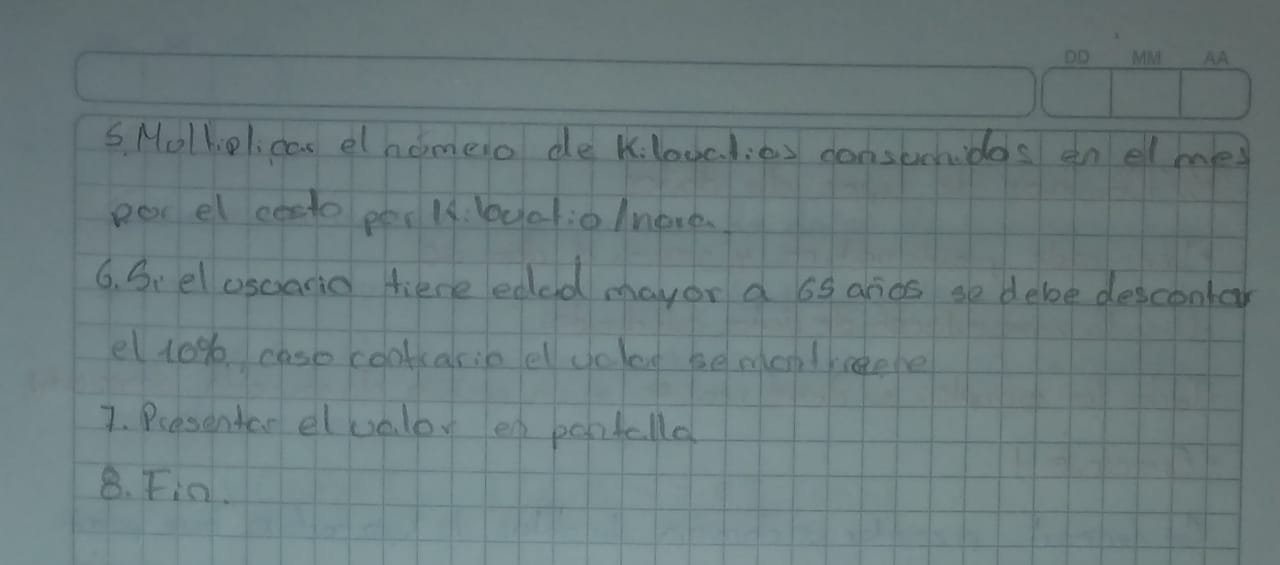 DD MM AA
5. Multiplicar el número de Kilovatios consumidos en el mes
por el costo por Kilovatio/hora.
6. Si el usuario tiene edad mayor a 65 años se debe descontar
el 10%, caso contrario el valor se mantiene
7. Presentar el valor en pantalla
8. Fin.